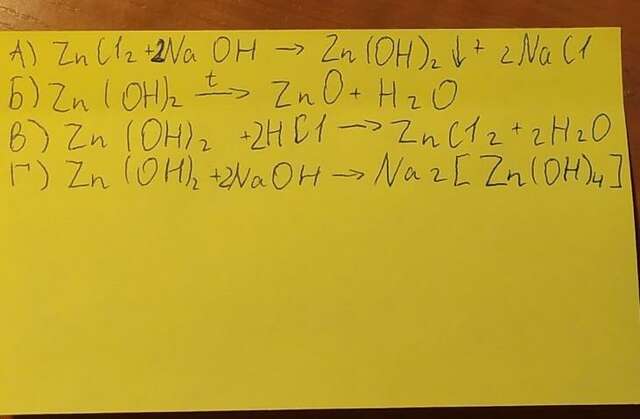 А) ZnCl₂ + 2NaOH → Zn(OH)₂ ↓ + 2NaCl
Б) Zn(OH)₂ —t→ ZnO + H₂O
В) Zn(OH)₂ + 2HCl → ZnCl₂ + 2H₂O
Г) Zn(OH)₂ + 2NaOH → Na₂[Zn(OH)₄]